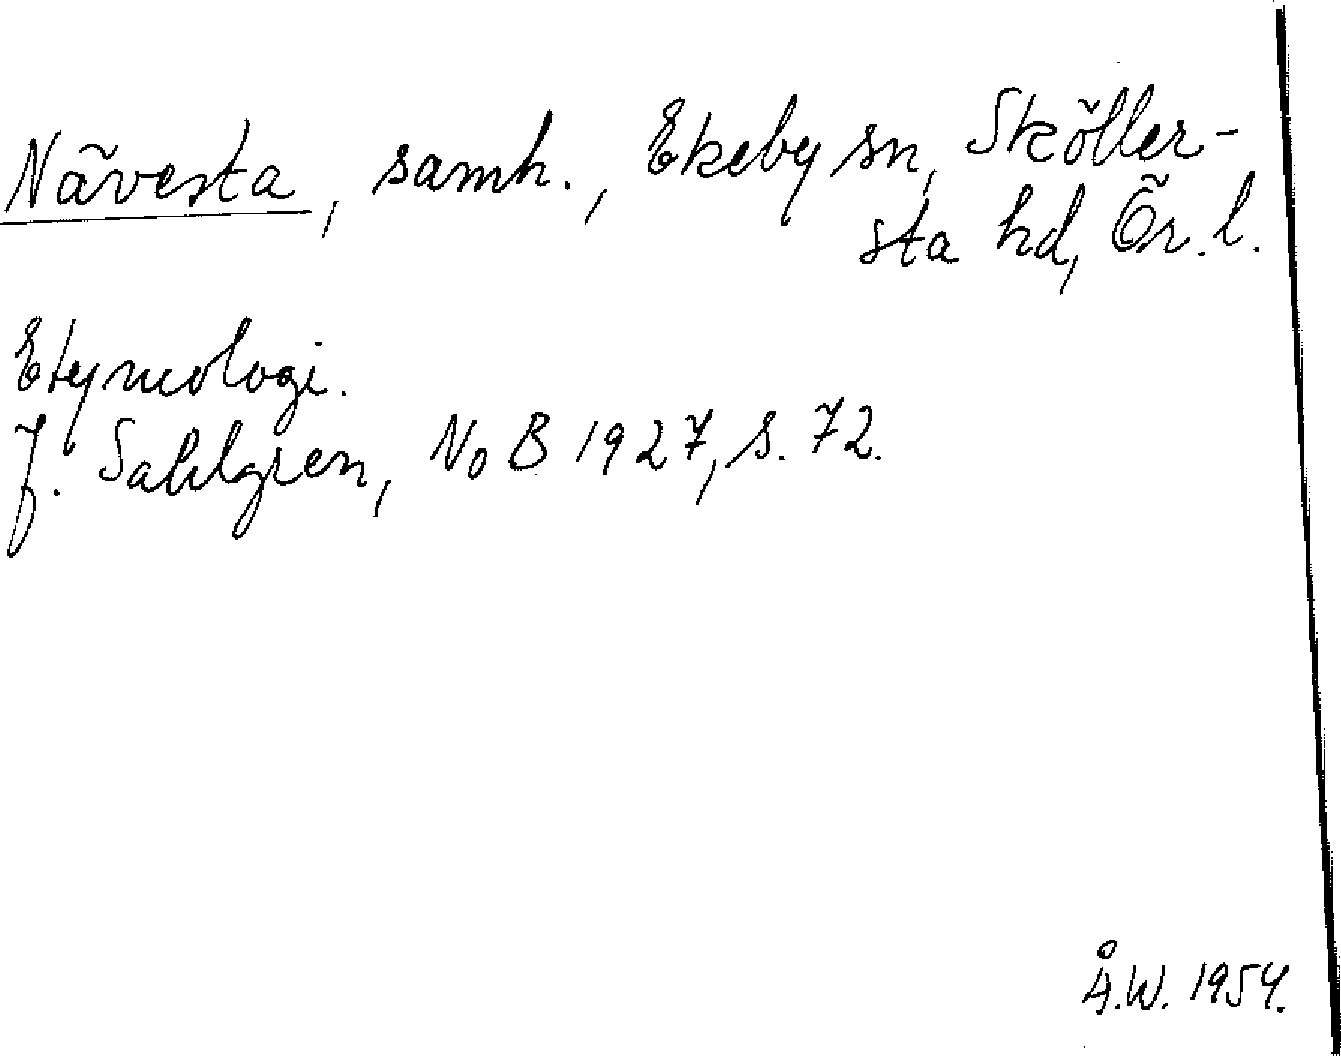 Nävesta, samh., Ekeby sn, Sköller-
sta hd, Ör. l.
Etymologi.
J. Sahlgren, NoB 1927, s. 72.
Å.W. 1954.